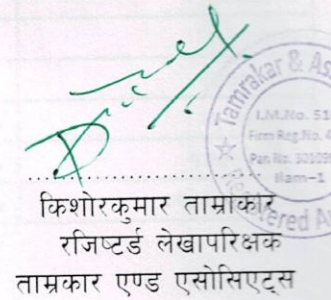 Tamrakar & As
I.M.No. 51
Firm Reg.No.
Pan No. 30109
Ilam-1
किशोरकुमार ताम्राकार
रजिष्टर्ड लेखापरिक्षक
ताम्रकार एण्ड एसोसिएट्स